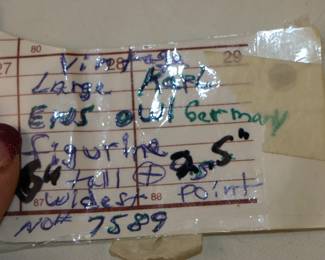 80
27 28 29
Vintage
Large Karl
Ens owl Germany
figurine
5" tall ⊕ 2.5"
87 widest 88 point
No# 7589